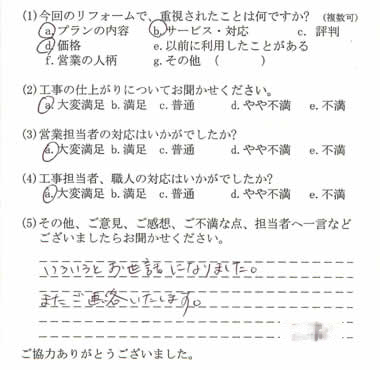 (1)今回のリフォームで、重視されたことは何ですか? (複数可)
a.プランの内容 b.サービス・対応 c. 評判
d.価格 e.以前に利用したことがある
f.営業の人柄 g.その他 ( )
(2)工事の仕上がりについてお聞かせください。
a.大変満足 b.満足 c.普通 d.やや不満 e.不満
(3)営業担当者の対応はいかがでしたか?
a.大変満足 b.満足 c.普通 d.やや不満 e.不満
(4)工事担当者、職人の対応はいかがでしたか?
a.大変満足 b.満足 c.普通 d.やや不満 e.不満
(5)その他、ご意見、ご感想、ご不満な点、担当者へ一言など
ございましたらお聞かせください。
いろいろとお世話になりました。
またご連絡いたします。
ご協力ありがとうございました。